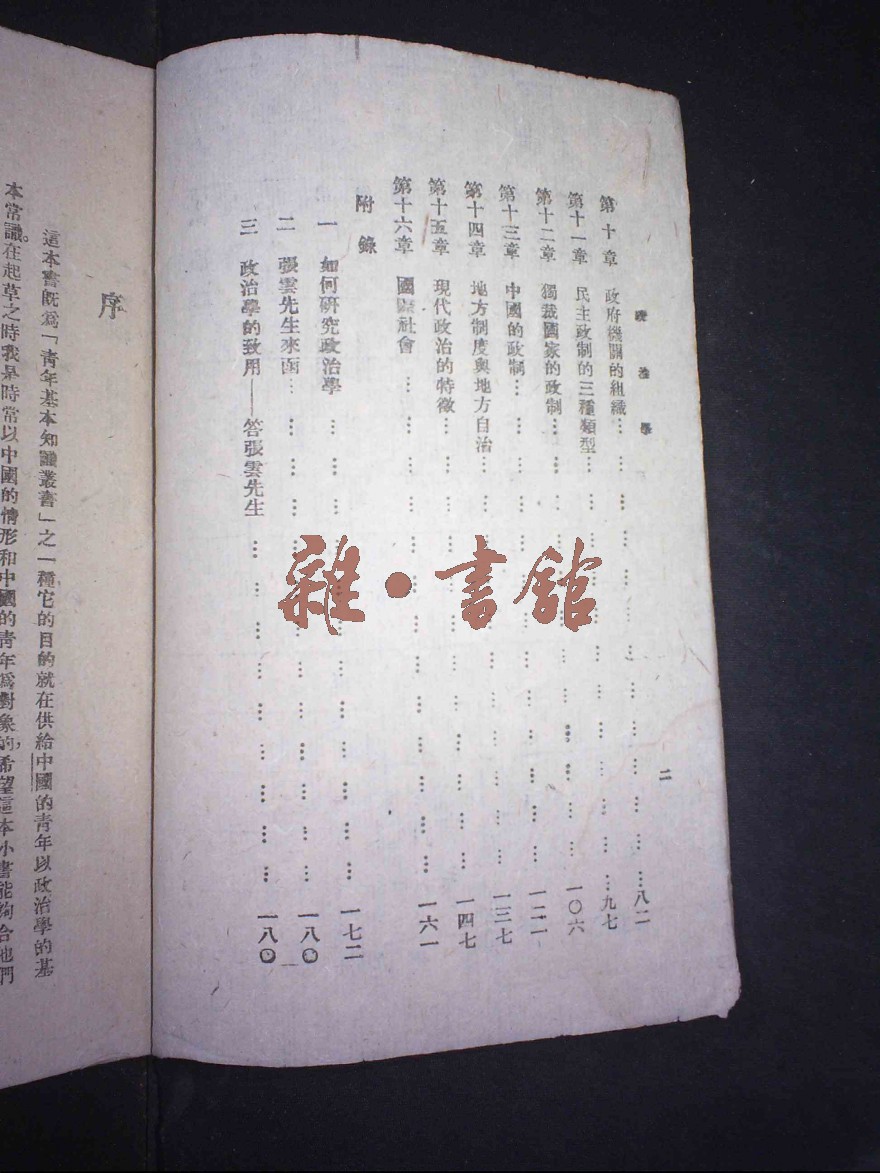 政治學
二
第十章 政府機關的組織…………八二
第十一章 民主政制的三種類型…………九七
第十二章 獨裁國家的政制…………一〇六
第十三章 中國的政制…………一二一
第十四章 地方制度與地方自治…………一三七
第十五章 現代政治的特徵…………一四七
第十六章 國際社會…………一六一
附錄
一 如何研究政治學…………一七二
二 張雲先生來函…………一八〇
三 政治學的致用——答張雲先生…………一八〇
雜·書館
序
這本書旣爲「靑年基本知識叢書」之一種,它的目的就在供給中國的靑年以政治學的基
本常識。在起草之時我是時常以中國的情形和中國的靑年爲對象的,希望這本小書能夠合他們